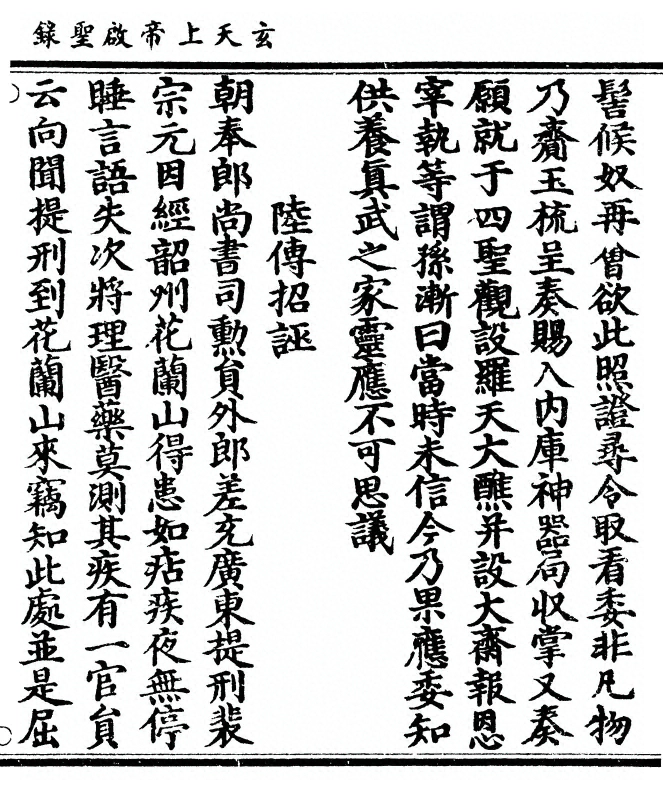 玄天上帝啟聖錄
髻候奴再曾欲此照證尋令取看委非凡物
乃齎玉梳呈奏賜入內庫神器局收掌又奏
願就于四聖觀設羅天大醮并設大齋報恩
宰執等謂孫漸曰當時未信今乃果應委知
供養真武之家靈應不可思議
陸傳招誣
朝奉郎尚書司勳員外郎差充廣東提刑裴
宗元因經韶州花蘭山得患如痁疾夜無停
睡言語失次將理醫藥莫測其疾有一官員
云向聞提刑到花蘭山來竊知此處並是屈